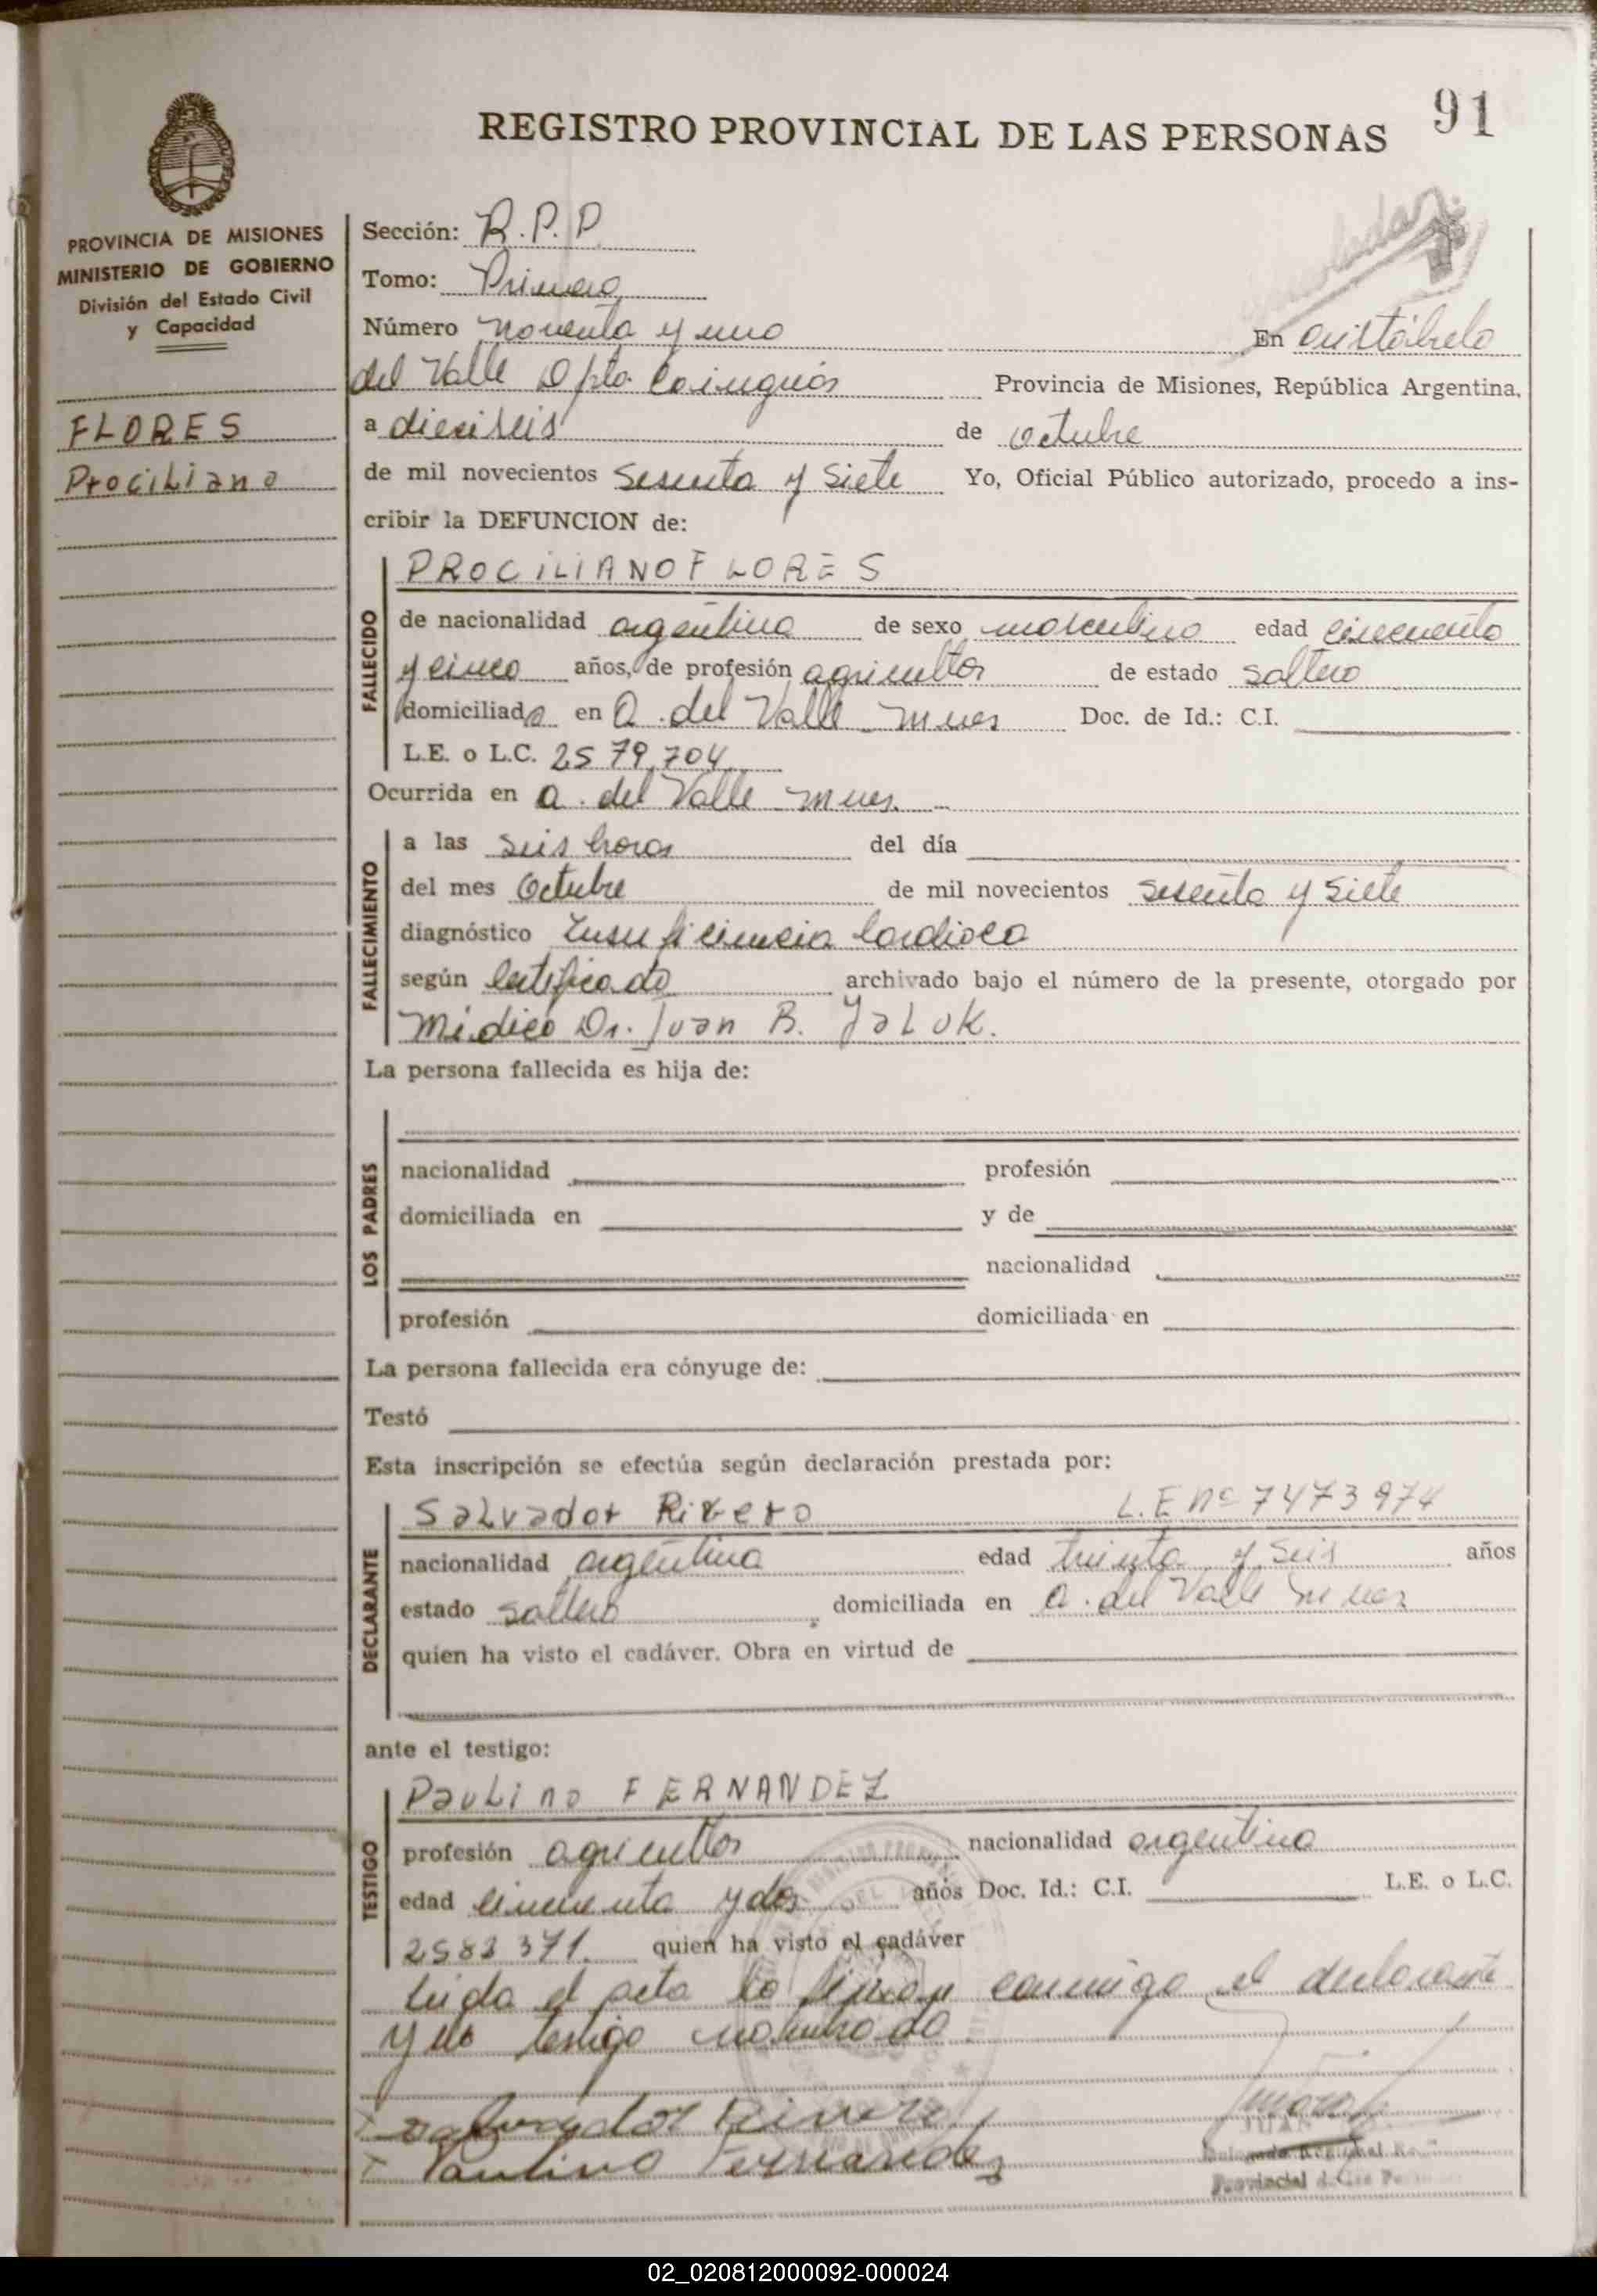 REGISTRO PROVINCIAL DE LAS PERSONAS 91
PROVINCIA DE MISIONES
MINISTERIO DE GOBIERNO
División del Estado Civil
y Capacidad
FLORES
Prociliano
Sección: R.P.P
Tomo: Primero
Número noventa y uno En aristóbulo
del Valle Dpto. Cainguás Provincia de Misiones, República Argentina,
a dieciseis de octubre
de mil novecientos Sesenta y Siete Yo, Oficial Público autorizado, procedo a ins-
cribir la DEFUNCION de:
FALLECIDO
PROCILIANO FLORES
de nacionalidad argentina de sexo masculino edad cincuenta
y cinco años, de profesión agricultor de estado soltero
domiciliado en A. del Valle mnes Doc. de Id.: C.I.
L.E. o L.C. 2579.704
Ocurrida en a. del Valle mnes.
FALLECIMIENTO
a las seis horas del día
del mes Octubre de mil novecientos sesenta y siete
diagnóstico Insuficiencia Cardiaca
según certificado archivado bajo el número de la presente, otorgado por
Médico Dr. Juan B. Yaluk.
La persona fallecida es hija de:
LOS PADRES
nacionalidad profesión
domiciliada en y de
nacionalidad
profesión domiciliada en
La persona fallecida era cónyuge de:
Testó
Esta inscripción se efectúa según declaración prestada por:
DECLARANTE
Salvador Rivero L.E nº 7473974
nacionalidad argentina edad treinta y seis años
estado soltero, domiciliada en A. del Valle mnes
quien ha visto el cadáver. Obra en virtud de
ante el testigo:
TESTIGO
Paulino FERNANDEZ
profesión agricultor nacionalidad argentina
edad cincuenta y dos años Doc. Id.: C.I. L.E. o L.C.
2582371. quien ha visto el cadáver
Leida el acta la firman conmigo el declarante
y testigo nombrado
Salvador Rivero
Paulino Fernandez
JUAN
Delegado Regional
Provincial de las
02_020812000092-000024